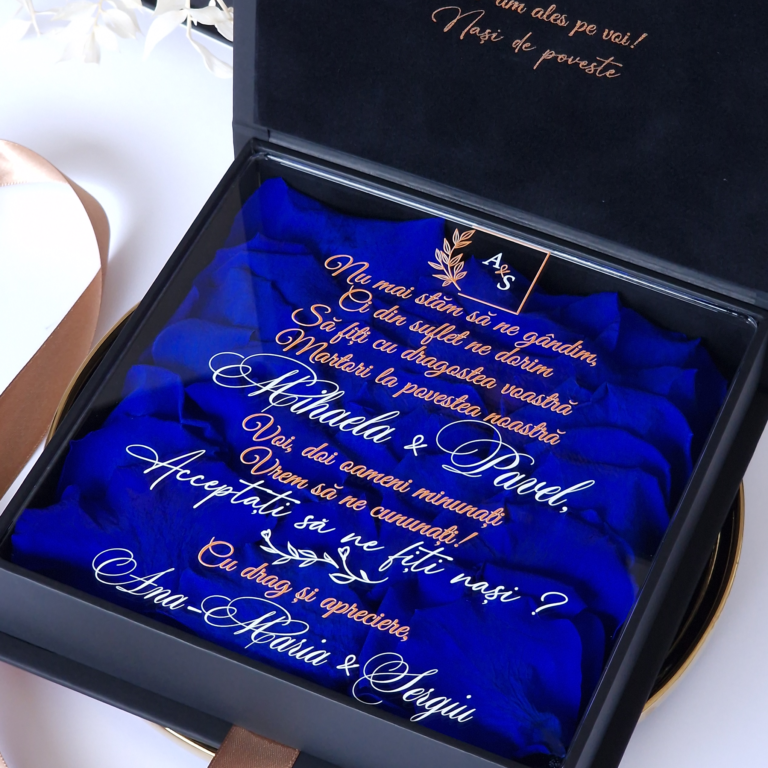 am ales pe voi!
Nași de poveste
A&S
Nu mai stăm să ne gândim,
Ci din suflet ne dorim
Să fiți cu dragostea voastră
Martori la povestea noastră
Mihaela & Pavel,
Voi, doi oameni minunați
Vrem să ne cununați!
Acceptați să ne fiți nași ?
Cu drag și apreciere,
Ana-Maria & Sergiu